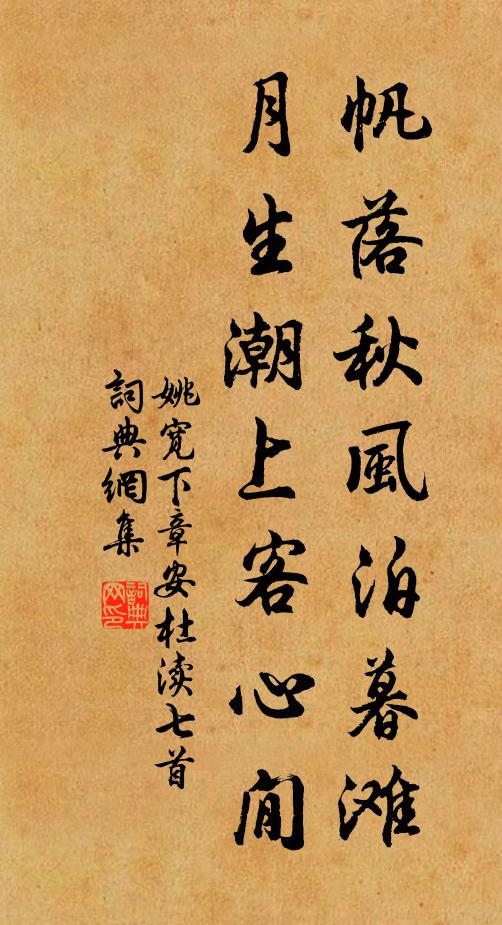 帆落秋風泊暮滩
月生潮上客心閒
姚寛下章安杜渎七首
詞典網集
詞典網印